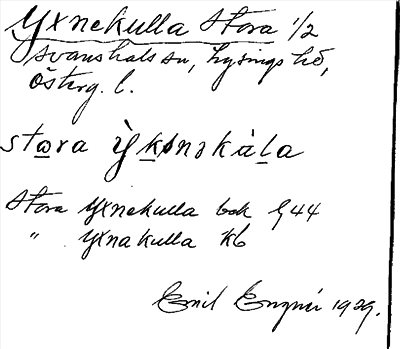 Yxnekulla Stora 1/2
Svanshals sn, Lysings hd,
Österg. l.
sta̲ra ỳk̲snəkàl̲a
Stora Yxnekulla bok G44
" Yxnakulla Kb
Emil 1929.